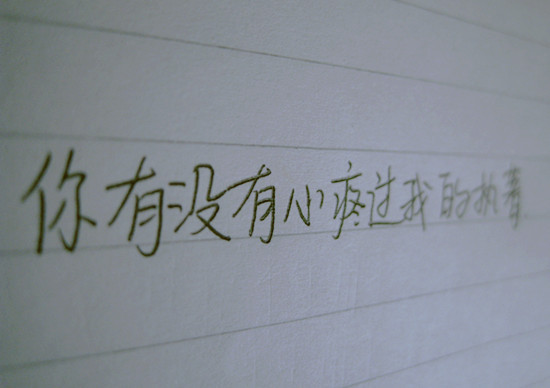 你有没有心疼过我的执著